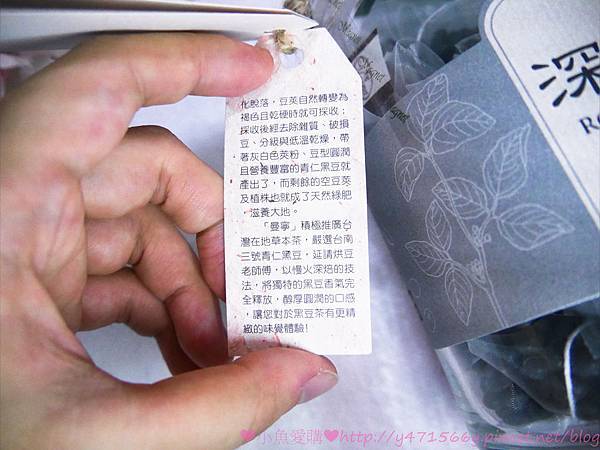 化脫落，豆莢自然轉變為
褐色且乾硬時就可採收；
採收後經去除雜質、破損
豆、分級與低溫乾燥，帶
著灰白色莢粉、豆型圓潤
且營養豐富的青仁黑豆就
產出了，而剩餘的空豆莢
及植株也就成了天然綠肥
，滋養大地。
「曼寧」積極推廣台
灣在地草本茶，嚴選台南
三號青仁黑豆，延請烘豆
老師傅，以慢火深焙的技
法，將獨特的黑豆香氣完
全釋放，醇厚圓潤的口感
，讓您對於黑豆茶有更精
緻的味覺體驗！
深
R
Magnet
♥小魚愛購♥http://y471566y.pixnet.net/blog